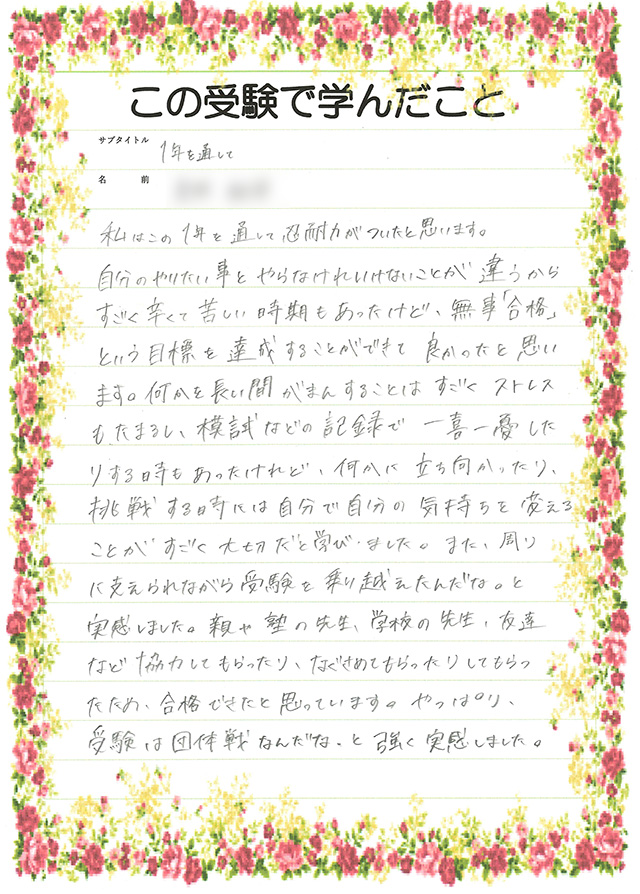 この受験で学んだこと
サブタイトル 1年を通して
名前
私はこの1年を通して忍耐力がついたと思います。
自分のやりたい事とやらなけれいけないことが違うから
すごく辛くて苦しい時期もあったけど、無事「合格」
という目標を達成することができて良かったと思い
ます。何かを長い間がまんすることはすごくストレス
もたまるし、模試などの記録で一喜一憂した
りする時もあったけれど、何かに立ち向かったり、
挑戦する時には自分で自分の気持ちを変える
ことがすごく大切だと学びました。また、周り
に支えられながら受験を乗り越えたんだな。と
実感しました。親や塾の先生、学校の先生、友達
など協力してもらったり、なぐさめてもらったりしてもらっ
たため、合格できたと思っています。やっぱり、
受験は団体戦なんだな、と強く実感しました。